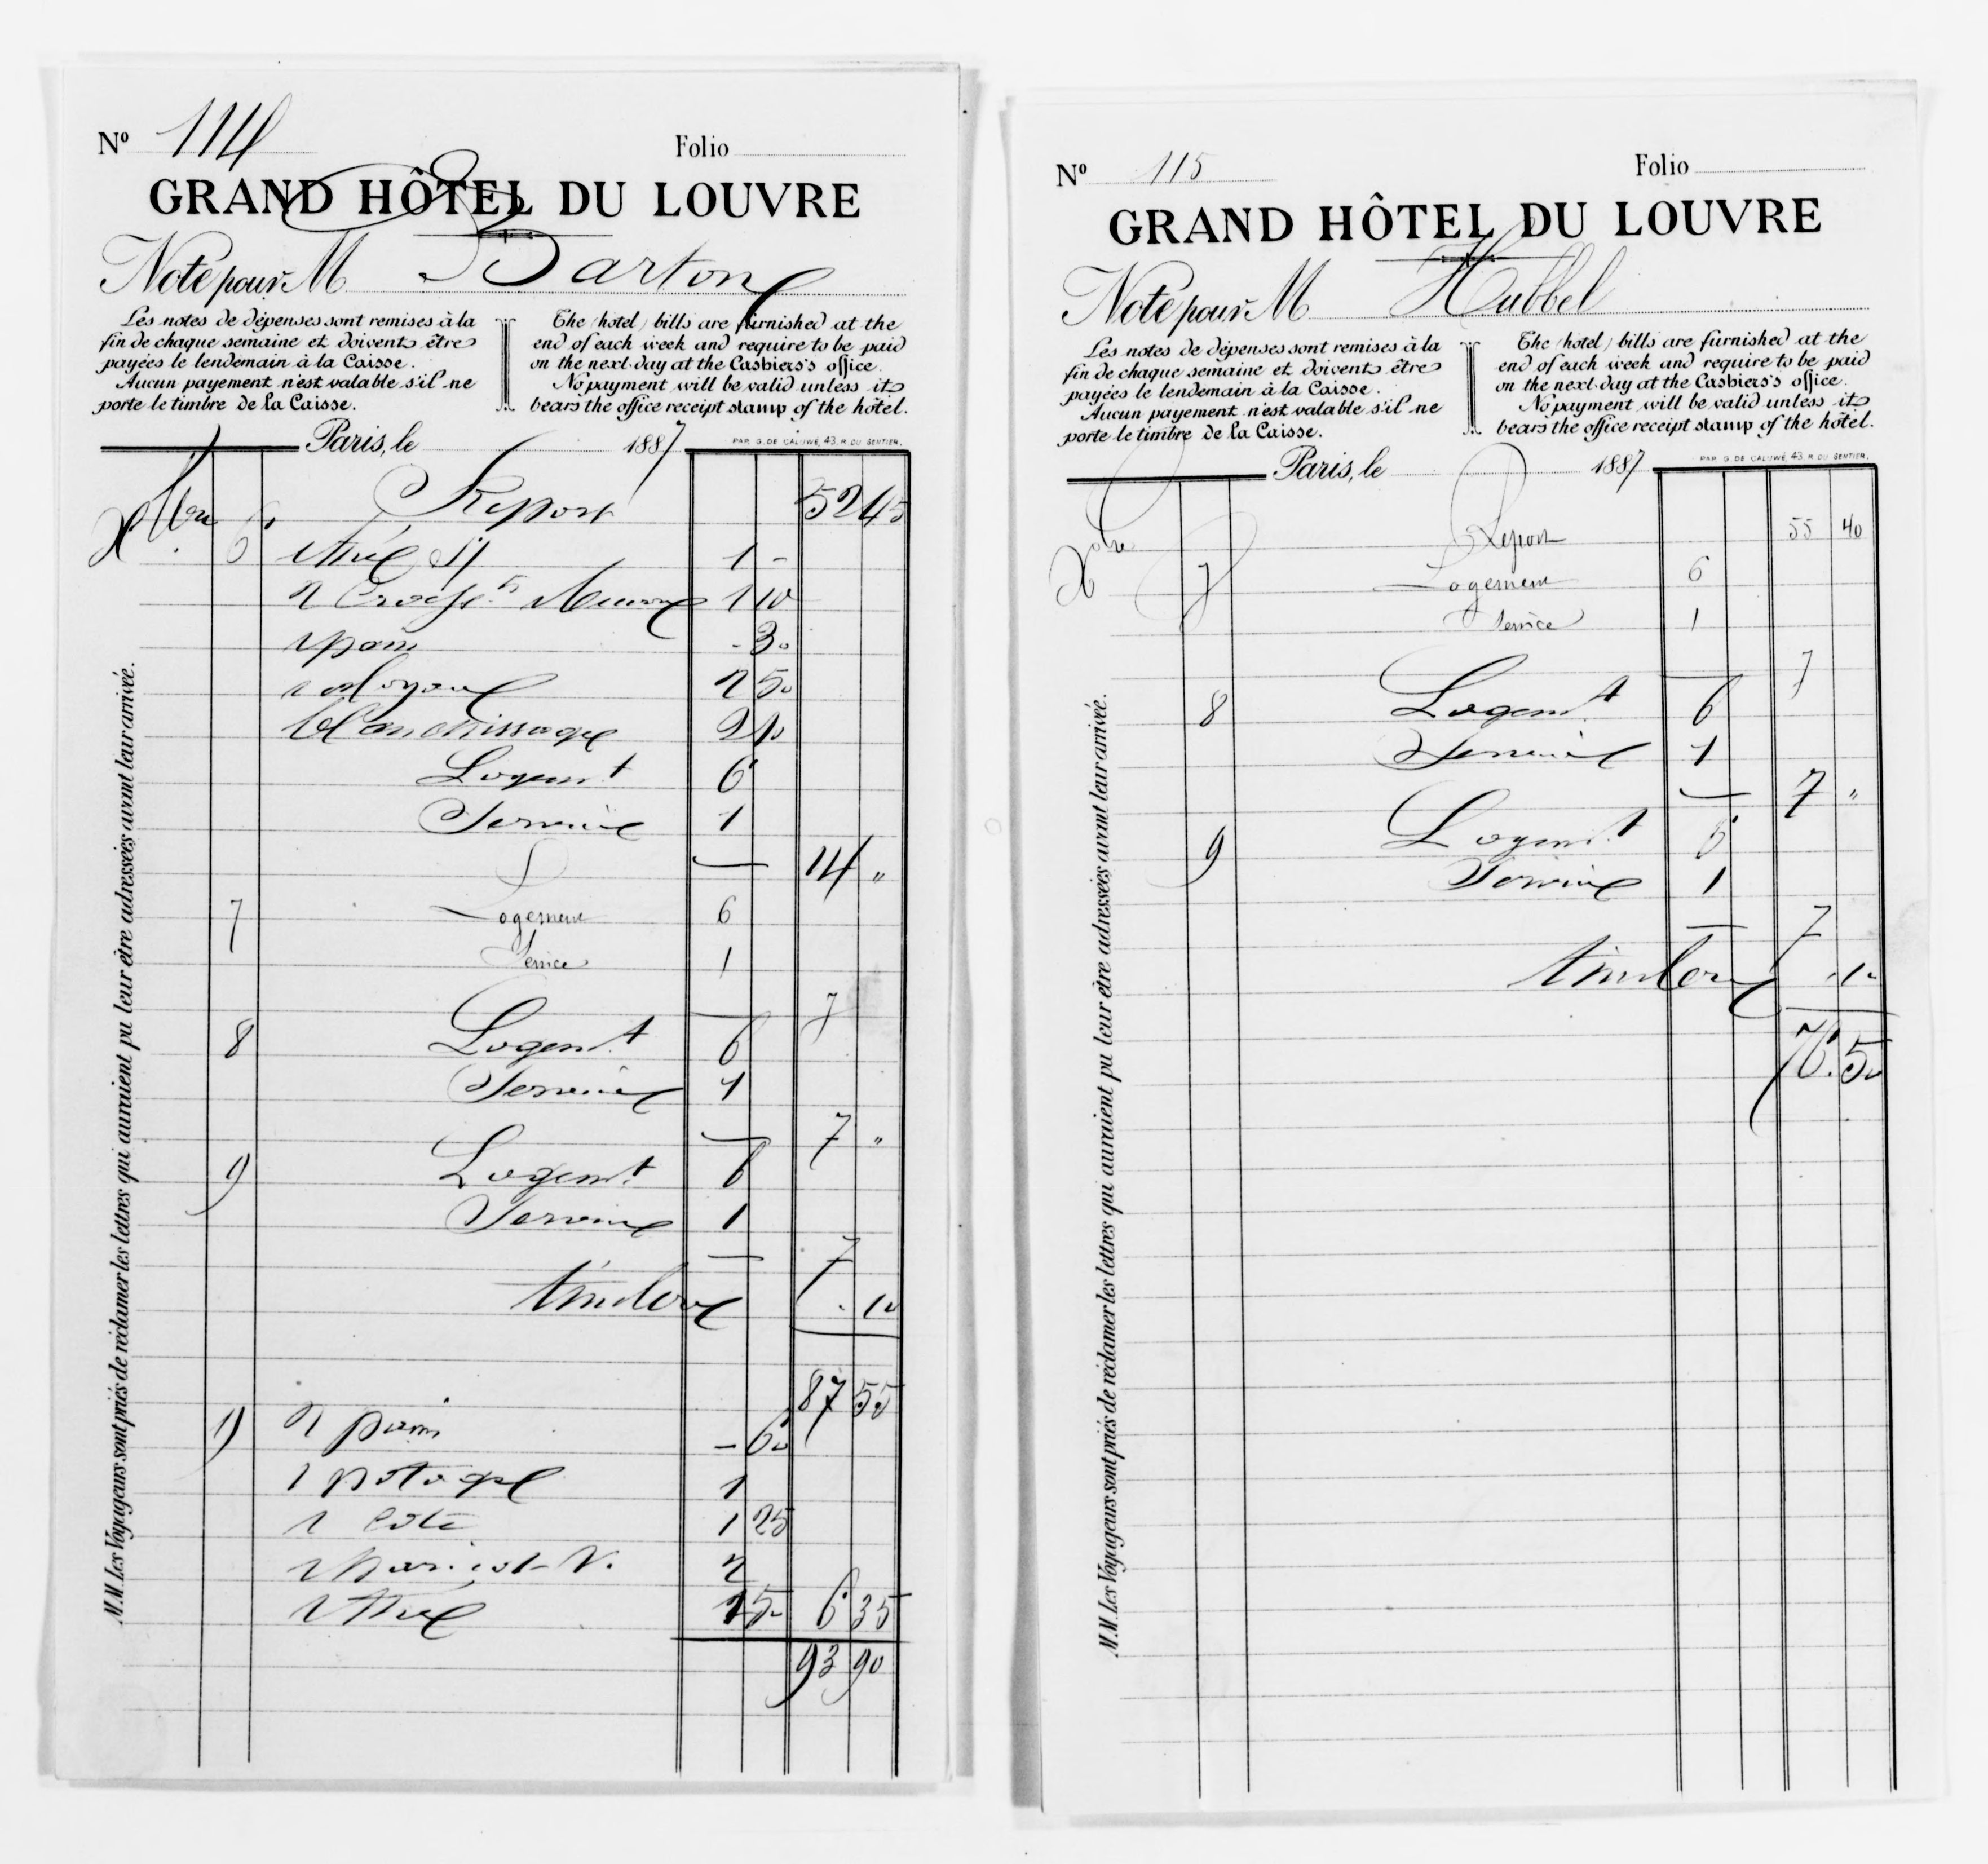 Nº 114 Folio
GRAND HÔTEL DU LOUVRE
Note pour M Barton
Les notes de dépenses sont remises à la
fin de chaque semaine et doivent être
payées le lendemain à la Caisse.
Aucun payement n'est valable s'il ne
porte le timbre de la Caisse.
The (hotel) bills are furnished at the
end of each week and require to be paid
on the next day at the Casbiers's office.
No payment will be valid unless it
bears the office receipt stamp of the hôtel.
Paris, le 1887
PAR G. DE CALUWÉ, 43, R. DU SENTIER.
M.M. Les Voyageurs sont priés de réclamer les lettres qui auraient pu leur être adressées avant leur arrivée.
Report 52 45
6 1 -
2 1 10
1 pain - 30
2 50
blanchissage 2 10
Logem.t 6
Service 1
14 "
7 Logement 6
Service 1
7
8 Logem.t 6
Service 1
7 "
9 Logem.t 6
Service 1
7
timbre . 10
87 55
9 2 pain - 60
1 potage 1
1 cote 1 25
1 haricot V. 2
1 thé 1 50 6 35
93 90
Nº 115 Folio
GRAND HÔTEL DU LOUVRE
Note pour M Hubbel
Les notes de dépenses sont remises à la
fin de chaque semaine et doivent être
payées le lendemain à la Caisse.
Aucun payement n'est valable s'il ne
porte le timbre de la Caisse.
The (hotel) bills are furnished at the
end of each week and require to be paid
on the next day at the Casbiers's office.
No payment will be valid unless it
bears the office receipt stamp of the hôtel.
Paris, le 1887
PAR G. DE CALUWÉ, 43, R. DU SENTIER.
M.M. Les Voyageurs sont priés de réclamer les lettres qui auraient pu leur être adressées avant leur arrivée.
Report 55 40
7 Logement 6
Service 1
7
8 Logem.t 6
Service 1
7 "
9 Logem.t 6
Service 1
7
timbre . 10
76.50